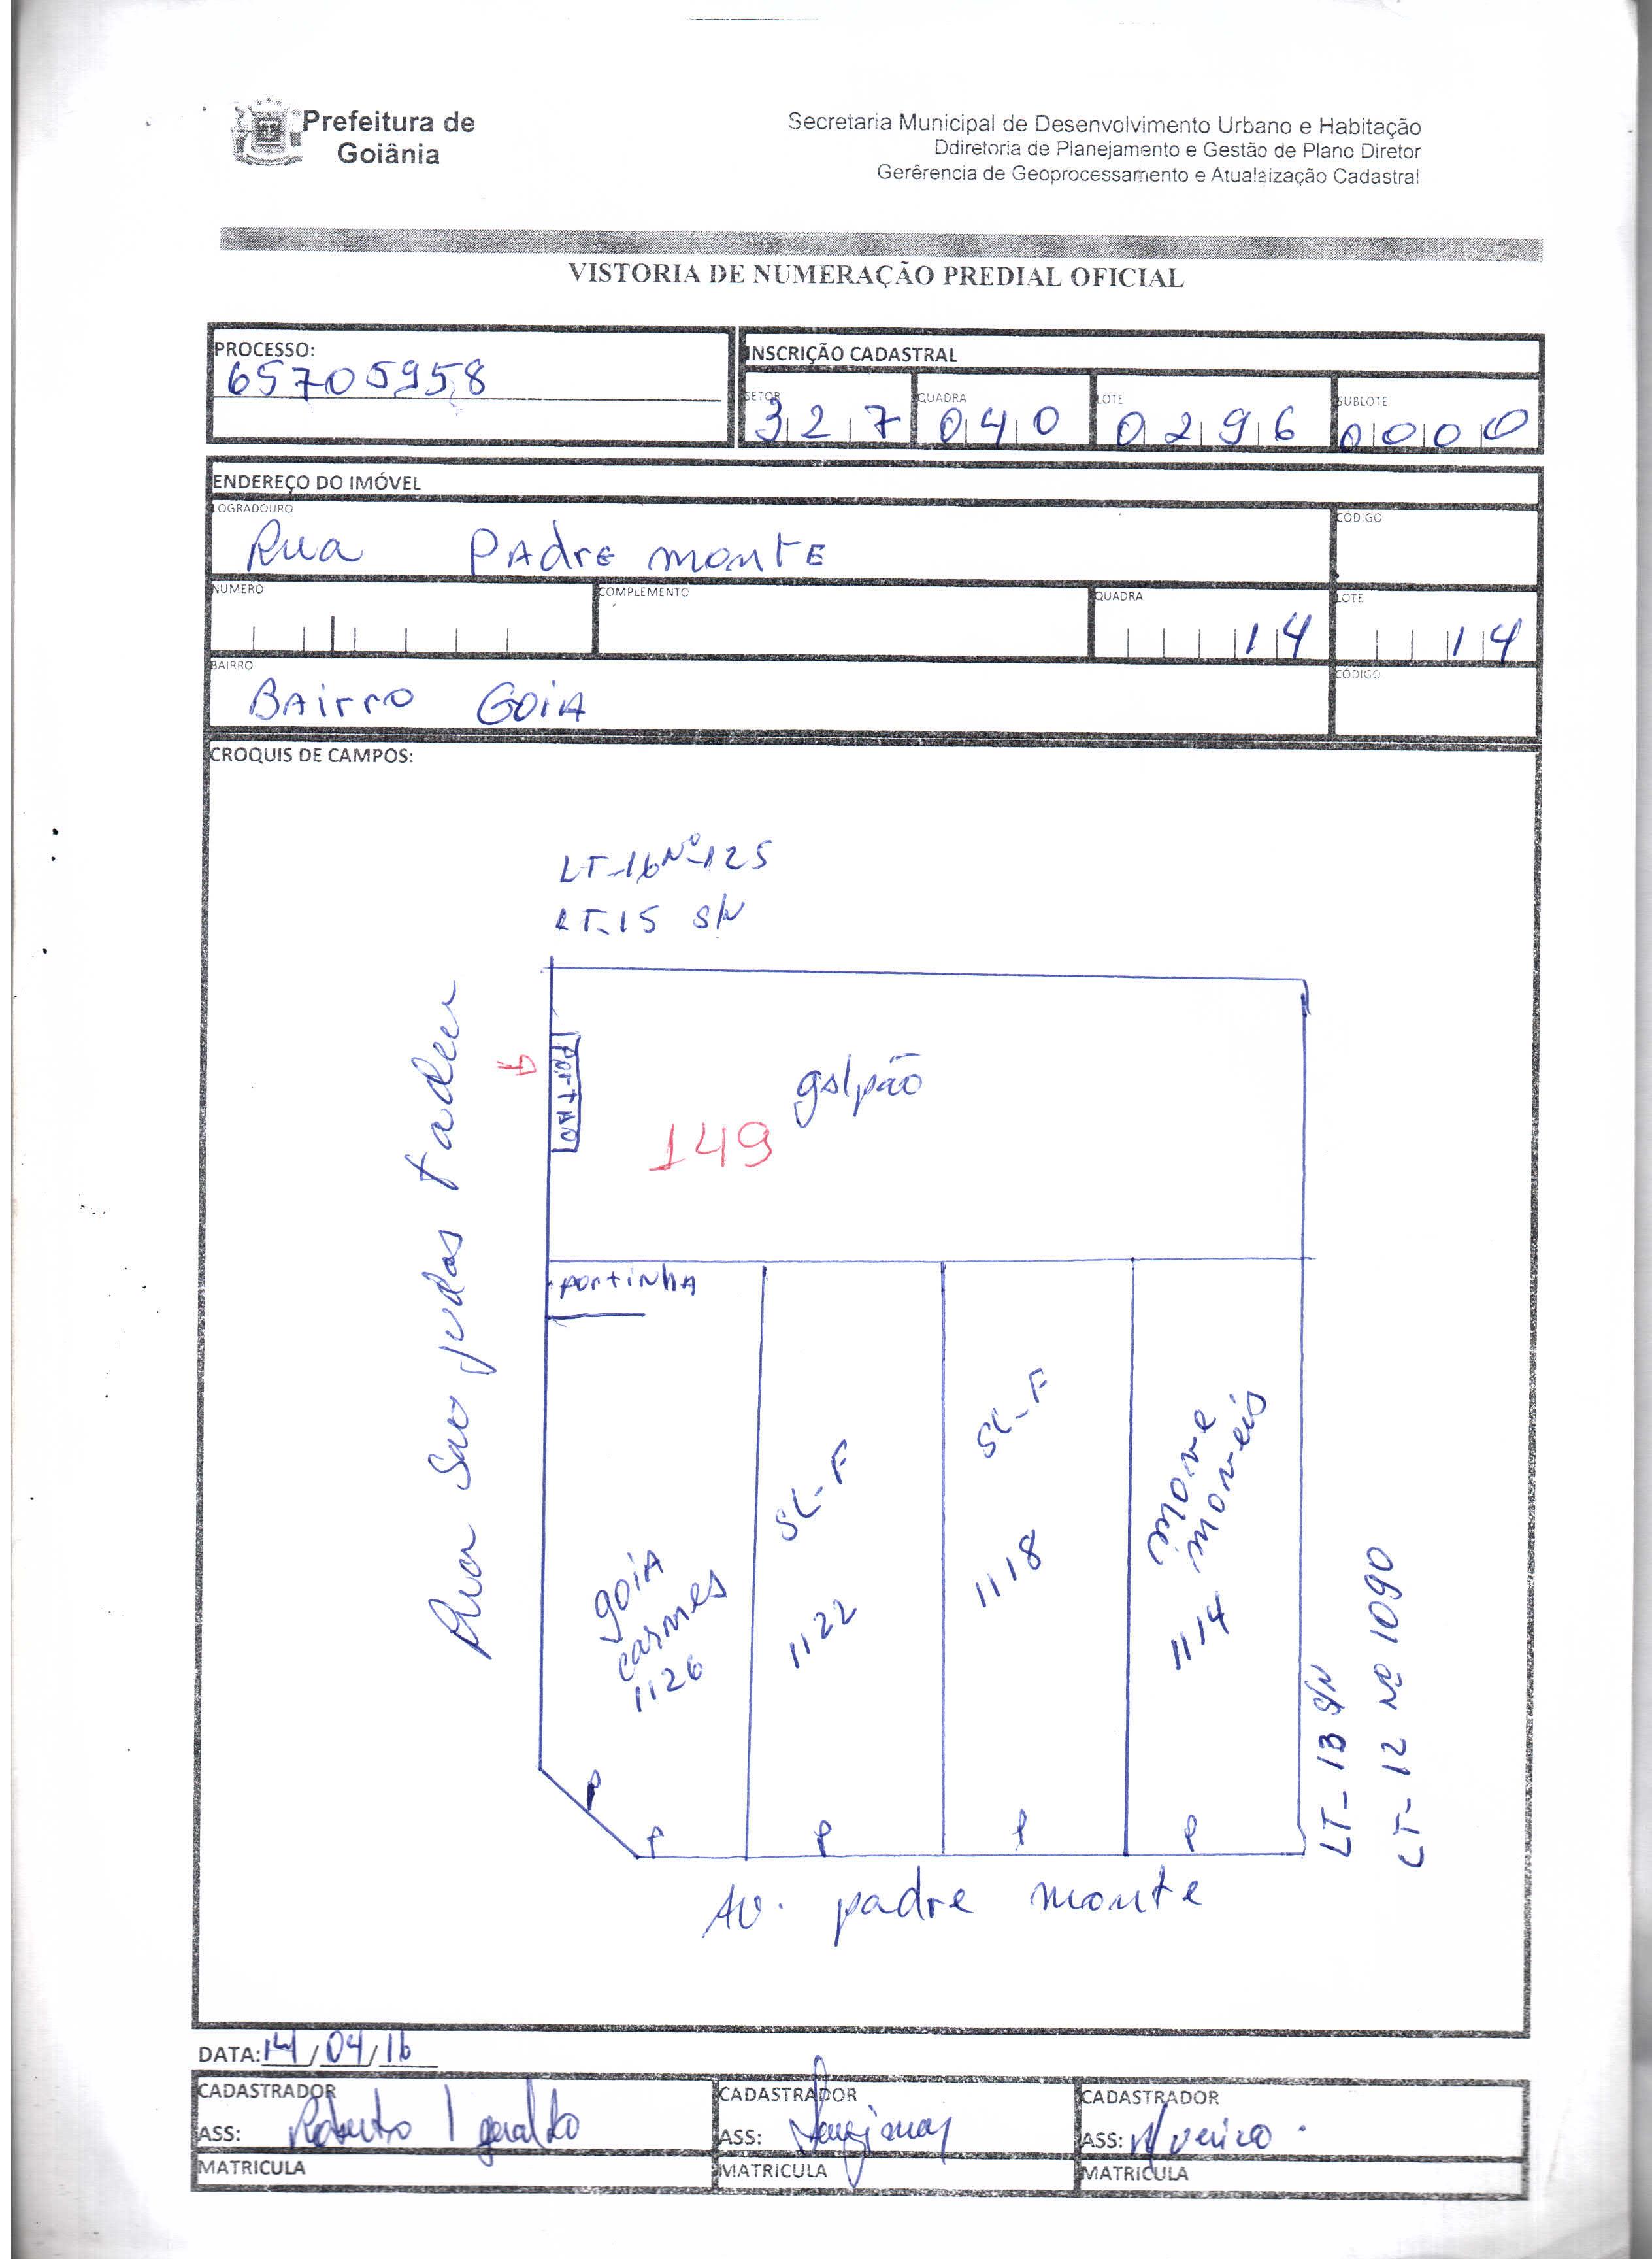 Prefeitura de
Goiânia
Secretaria Municipal de Desenvolvimento Urbano e Habitação
Ddiretoria de Planejamento e Gestão de Plano Diretor
Gerêrencia de Geoprocessamento e Atualaização Cadastral
VISTORIA DE NUMERAÇÃO PREDIAL OFICIAL
PROCESSO:
65705958
INSCRIÇÃO CADASTRAL
SETOR
327
QUADRA
040
LOTE
0296
SUBLOTE
0000
ENDEREÇO DO IMÓVEL
LOGRADOURO
Rua PAdrE montE
CÓDIGO
NÚMERO
COMPLEMENTO
QUADRA
14
LOTE
14
BAIRRO
BAirro GOiA
CÓDIGO
CROQUIS DE CAMPOS:
LT-16 Nº-125
LT-15 S/N
Rua Sao judas tadeu
P
PORTÃO
galpão
149
portinhA
goiA
carnes
1126
SL-F
1122
SL-F
1118
move
moveis
1114
LT-13 S/N
LT-12 Nº 1090
P
P
P
P
P
AV. padre monte
DATA: 14/04/16
CADASTRADOR
ASS: Roberto / geraldo
MATRICULA
CADASTRADOR
ASS:
MATRICULA
CADASTRADOR
ASS:
MATRICULA